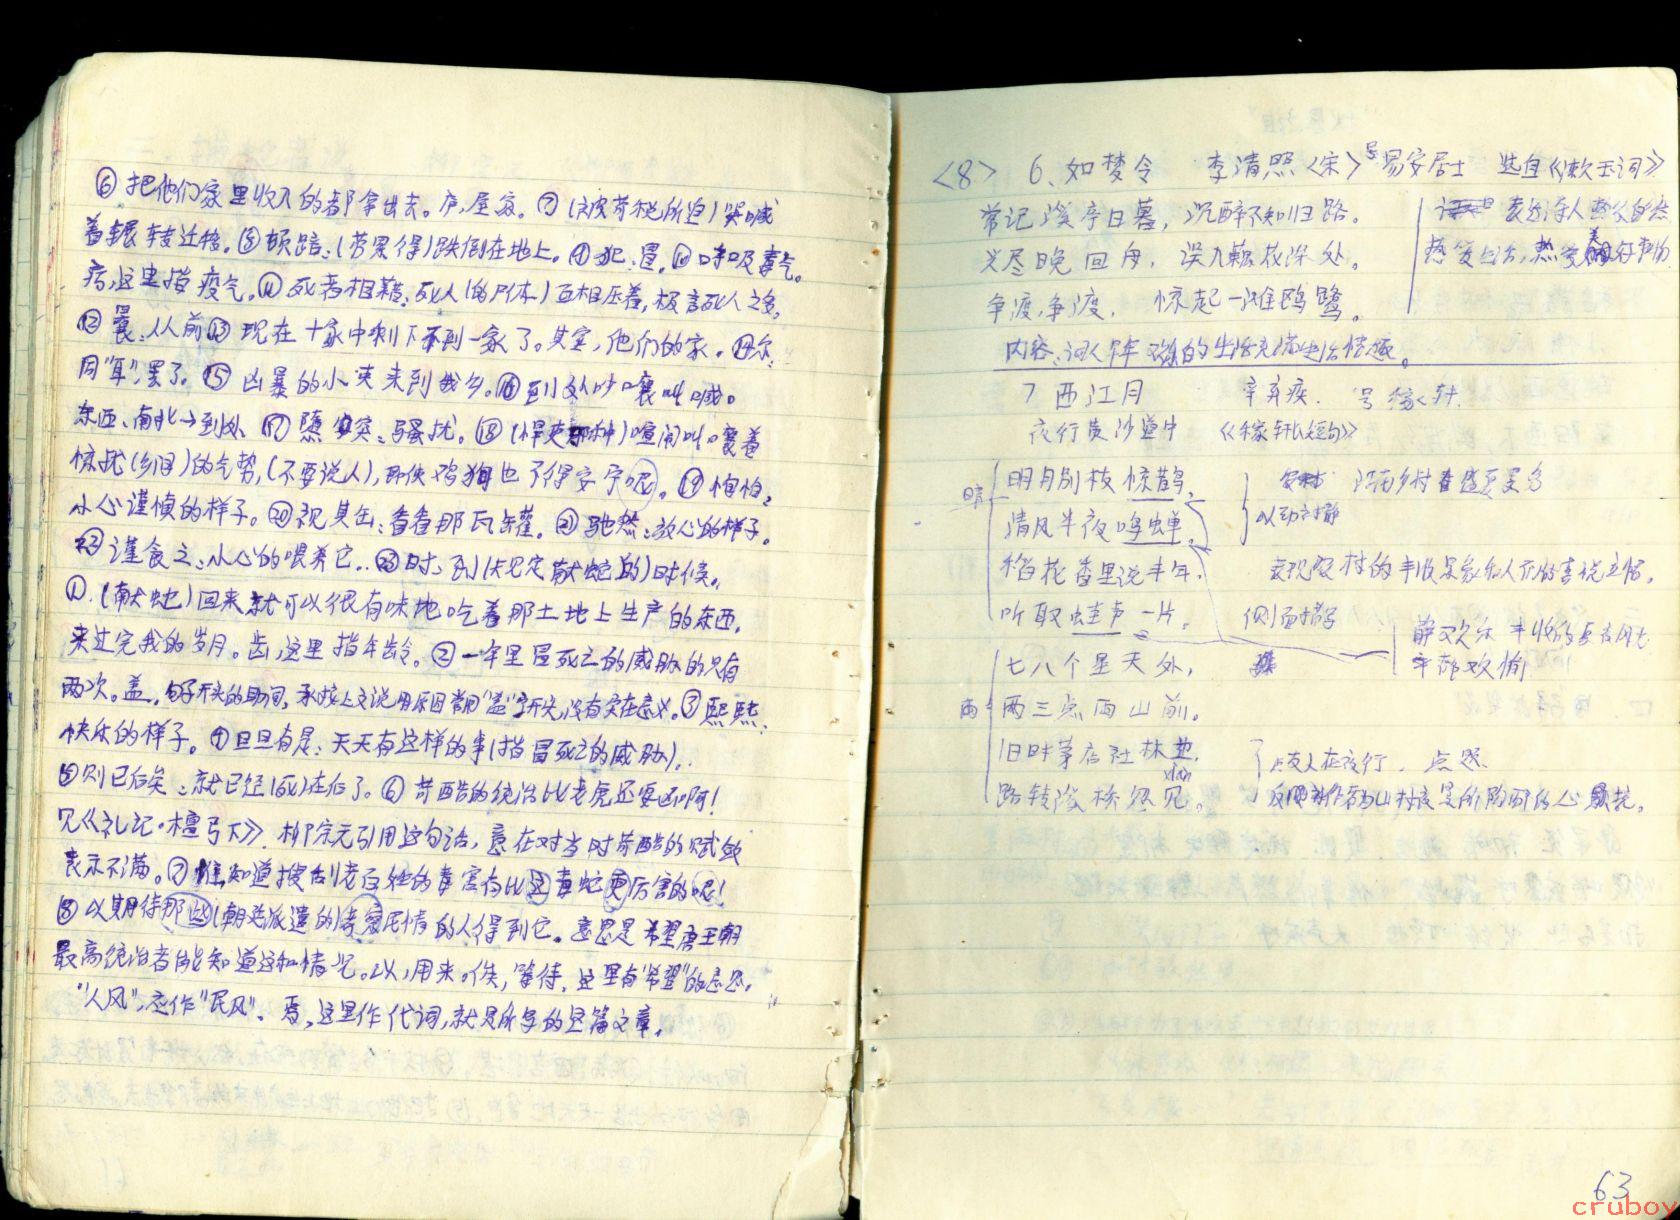 ⑥把他们家里收入的都拿出去。庐,屋宇。⑦(被苛税所迫)哭喊
着辗转迁移。⑧顿踣:(劳累得)跌倒在地上。⑨犯:冒。⑩呼吸毒气。
疠,这里指疫气。⑪死者相藉:死人(的尸体)互相压着,极言死人之多。
⑫曩:从前⑬现在十家中剩下不到一家了。其室,他们的家。⑭尔:
同"耳",罢了。⑮凶暴的小吏来到我乡。⑯到处吵嚷叫喊。
东西、南北→到处 ⑰隳突:骚扰。⑱(悍吏那种)喧闹叫嚷着
惊扰(乡间)的气势,(不要说人),即使鸡狗也不得安宁呢。⑲恂恂:
小心谨慎的样子。⑳视其缶:看看那瓦罐。㉑弛然:放心的样子。
㉒谨食之:小心的喂养它。㉓时:到(规定献蛇的)时候。
①.(献蛇)回来就可以很有味地吃着那土地上生产的东西,
来过完我的岁月。齿,这里指年龄。②一年里冒死亡的威胁的只有
两次。盖,句子开头的助词,承接上文说明原因常用"盖"字开头,没有实在意义。③熙熙:
快乐的样子。④旦旦有是:天天有这样的事(指冒死亡的威胁)。
⑤则已后矣:就已经(死)在后了。⑥苛酷的统治比老虎还要凶啊!
见《礼记·檀弓下》. 柳宗元引用这句话,意在对当时苛酷的赋敛
表示不满。⑦谁知道搜刮老百姓的毒害有比这毒蛇更厉害的呢!
⑧以期待那些(朝廷派遣的)考察民情的人得到它。意思是希望唐王朝
最高统治者能知道这种情况。以,用来。俟,等待,这里有"希望"的意思。
"人风",应作"民风"。焉,这里作代词,就是所写的这篇文章。
<8> 6、如梦令 李清照<宋> 号易安居士 选自《漱玉词》
常记溪亭日暮,沉醉不知归路。
兴尽晚回舟,误入藕花深处。
争渡,争渡,惊起一滩鸥鹭。
表达诗人热爱自然
热爱生活,热爱美好事物
内容:词人早年 的生活充满生活情趣。
7 西江月 辛弃疾. 号稼轩.
夜行黄沙道中 《稼轩长短句》
晴
明月别枝惊鹊,
清风半夜鸣蝉。
稻花香里说丰年,
听取蛙声一片。
以动衬静
表现农村的丰收景象和人们的喜悦之情。
侧面描写
雨
七八个星天外,
两三点雨山前。
旧时茅店社林边,
路转溪桥忽见。
xiàn
点友人在夜行. 点题
63
cruboy